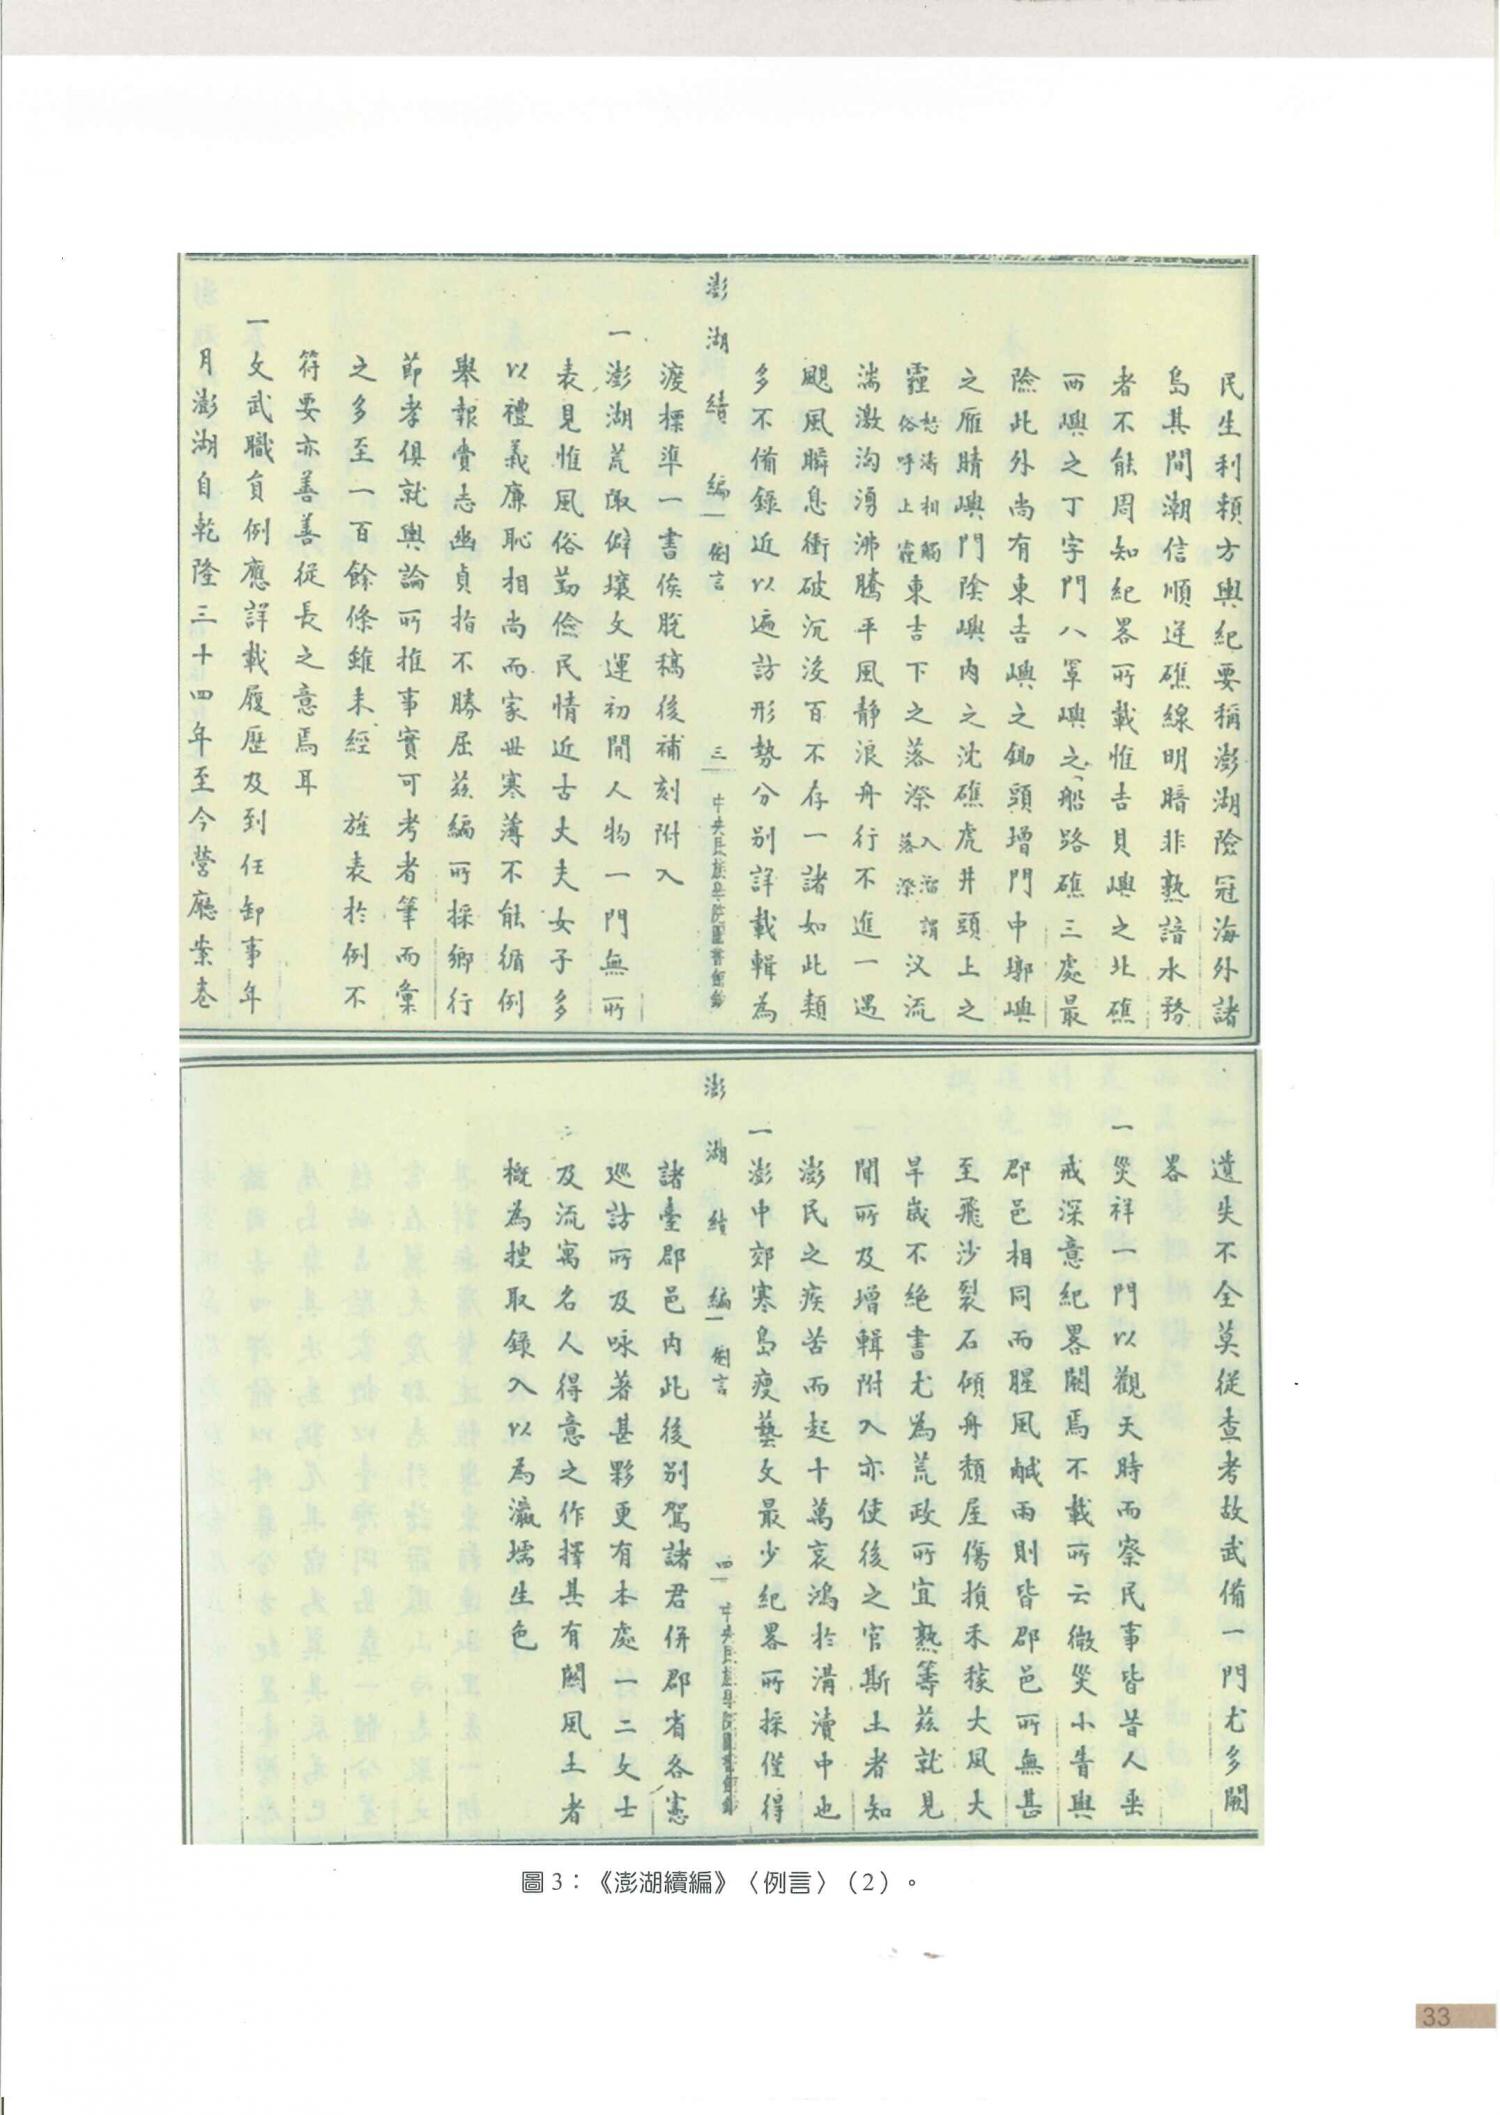 民生利賴方輿紀要稱澎湖險冠海外諸
島其間潮信順逆礁線明暗非熟諳水務
者不能周知紀畧所載惟吉貝嶼之北礁
西嶼之丁字門八罩嶼之船路礁三處最
險此外尚有東吉嶼之鋤頭增門中墩嶼
之雁睛嶼門陰嶼內之沈礁虎井頭上之
霾怒濤相觸俗呼上霾東吉下之落漈入溜謂落漈汊流
湍激洶湧沸騰平風静浪舟行不進一遇
颶風瞬息衝破沉淩百不存一諸如此類
多不俻錄近以遍訪形勢分別詳載輯為
澎湖續編 例言 三 中央民族學院圖書館鈔
渡標準一書俟脫稿後補刻附入
一澎湖荒陬僻壤文運初開人物一門無所
表見惟風俗勤儉民情近古丈夫女子多
以禮義廉恥相尚而家世寒薄不能循例
舉報賫志幽貞指不勝屈兹編所採鄉行
節孝俱就輿論所推事實可考者筆而彙
之多至一百餘條雖未經 旌表於例不
符要亦善善從長之意焉耳
一文武職員例應詳載履歷及到任卸事年
月澎湖自乾隆三十四年至今營廳案卷
遺失不全莫從查考故武備一門尤多闕
畧
一災祥一門以觀天時而察民事皆昔人垂
戒深意紀畧闕焉不載所云微災小眚與
郡邑相同而腥風鹹雨則皆郡邑所無甚
至飛沙裂石傾舟頹屋傷損禾稼大風大
旱歲不絕書尤為荒政所宜熟籌茲就見
聞所及增輯附入亦使後之官斯土者知
澎民之疾苦而起十萬哀鴻於溝瀆中也
一澎中郊寒島瘦藝文最少紀畧所採僅得
澎湖續編 例言 四 中央民族學院圖書館鈔
諸臺郡邑內此後別駕諸君併郡省各憲
巡訪所及咏著甚夥更有本處一二文士
及流寓名人得意之作擇其有關風土者
概為搜取錄入以為瀛壖生色
圖3：《澎湖續編》〈例言〉（2）。
33